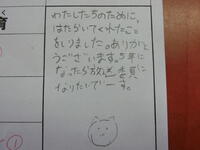 育
わたしたちのために、
はたらいてくれたこと
をしりました。ありがと
うございます。5年に
なったら放送委員に
なりたいでーす。